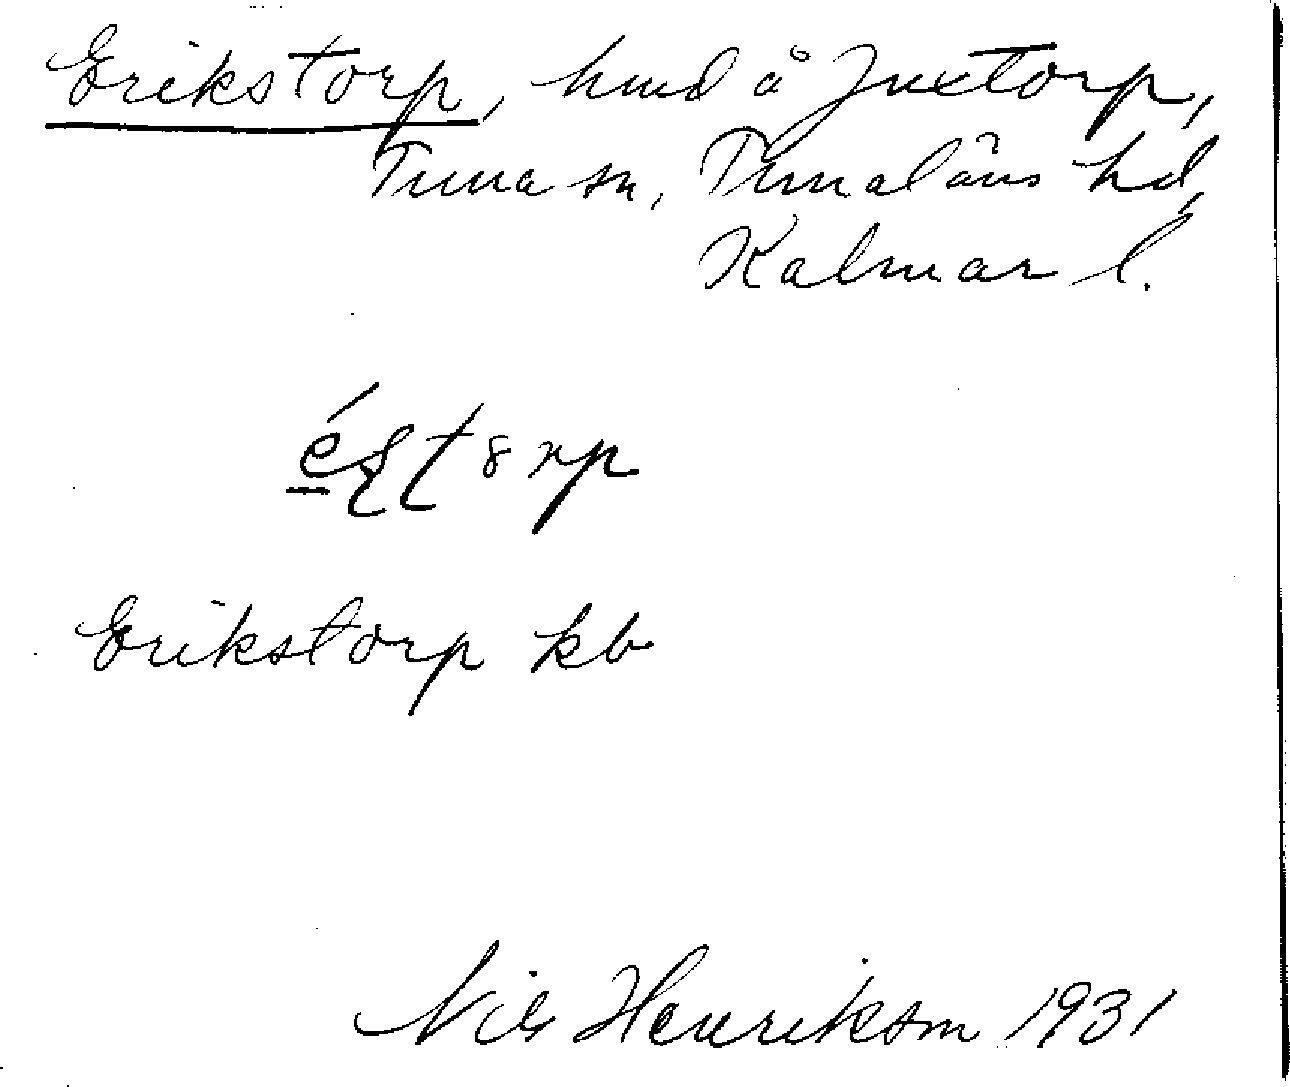 Erikstorp, hmd å Juxtorp,
Tuna sn, Tunaläns hd,
Kalmar l.
Erikstorp kb
Nils Henrikson 1931